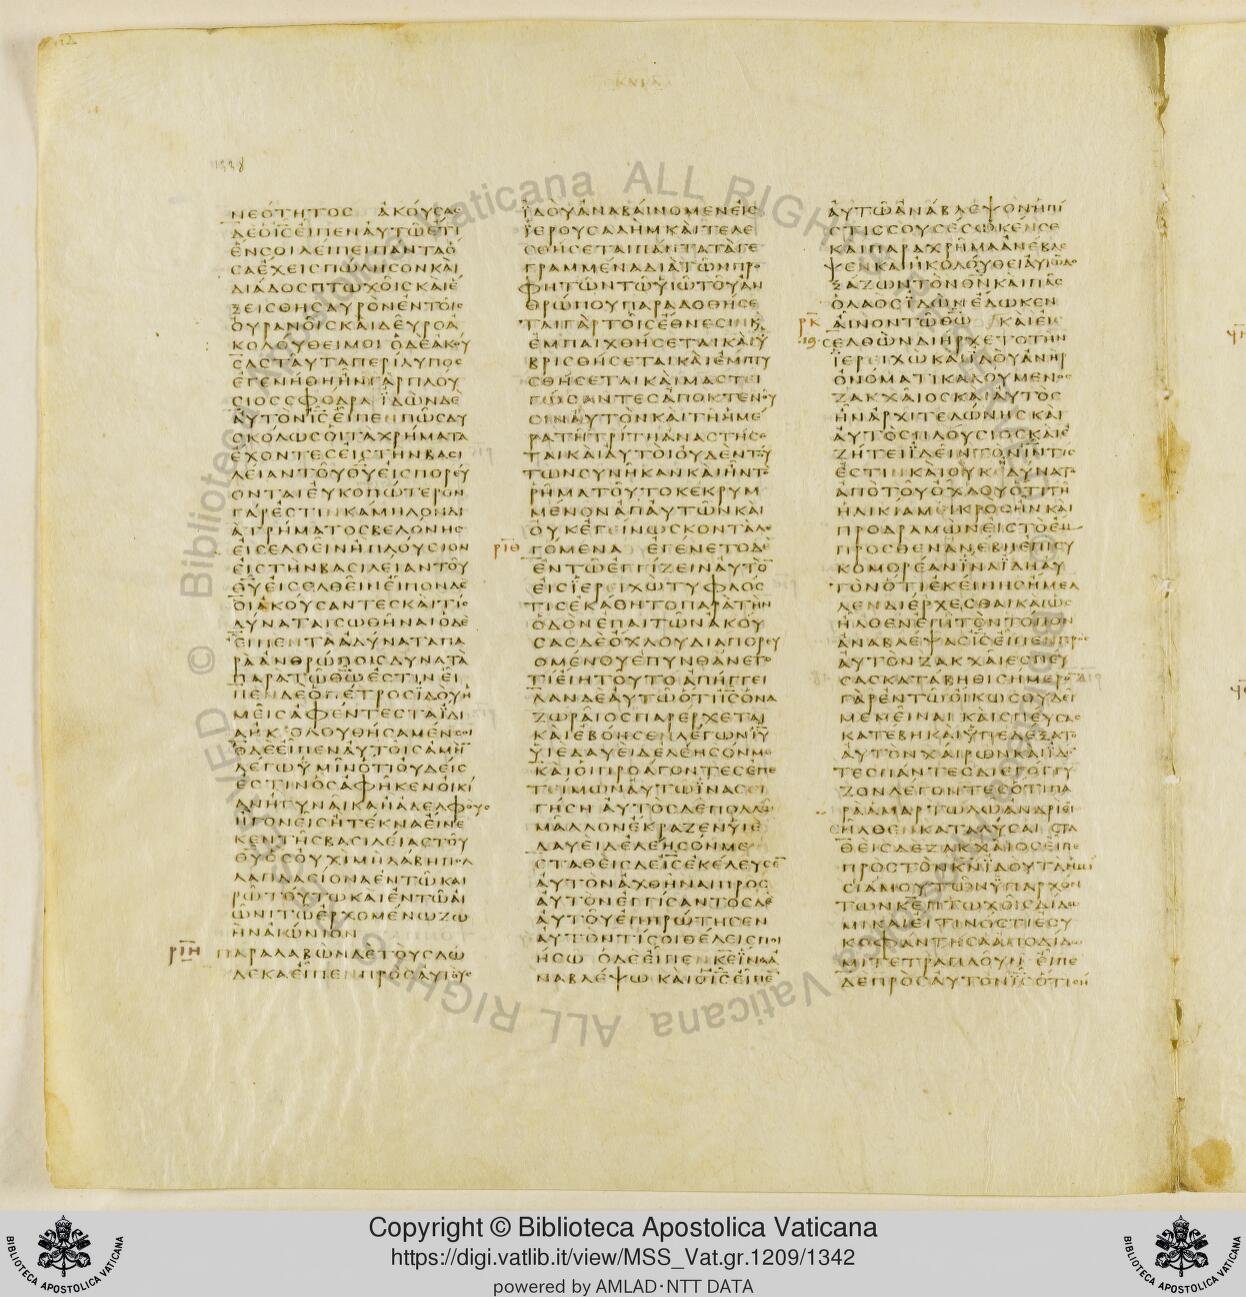 1338
ΝΕΟΤΗΤΟΣ ΑΚΟΥΣΑΣ
ΔΕΟΙΣΕΙΠΕΝΑΥΤΩΕΤΙ
ΕΝΣΟΙΛΕΙΠΕΙΠΑΝΤΑΟ
ΣΑΕΧΕΙΣΠΩΛΗΣΟΝΚΑΙ
ΔΙΑΔΟΣΠΤΩΧΟΙΣΚΑΙΕ
ΞΕΙΣΘΗΣΑΥΡΟΝΕΝΤΟΙΣ
ΟΥΡΑΝΟΙΣΚΑΙΔΕΥΡΟΑ
ΚΟΛΟΥΘΕΙΜΟΙ ΟΔΕΑΚΟΥ
ΣΑΣΤΑΥΤΑΠΕΡΙΛΥΠΟΣ
ΕΓΕΝΗΘΗΗΝΓΑΡΠΛΟΥ
ΣΙΟΣΣΦΟΔΡΑ ΙΔΩΝΔΕ
ΑΥΤΟΝΙΣΕΙΠΕΝΠΩΣΔΥ
ΣΚΟΛΩΣΟΙΤΑΧΡΗΜΑΤΑ
ΕΧΟΝΤΕΣΕΙΣΤΗΝΒΑΣΙ
ΛΕΙΑΝΤΟΥΘΥΕΙΣΠΟΡΕΥ
ΟΝΤΑΙΕΥΚΟΠΩΤΕΡΟΝ
ΓΑΡΕΣΤΙΝΚΑΜΗΛΟΝΔΙ
Α ΤΡΗΜΑΤΟΣΒΕΛΟΝΗΣ
ΕΙΣΕΛΘΕΙΝΗΠΛΟΥΣΙΟΝ
ΕΙΣΤΗΝΒΑΣΙΛΕΙΑΝΤΟΥ
ΘΥΕΙΣΕΛΘΕΙΝΕΙΠΟΝΔΕ
ΟΙΑΚΟΥΣΑΝΤΕΣΚΑΙΤΙΣ
ΔΥΝΑΤΑΙΣΩΘΗΝΑΙΟΔΕ
ΕΙΠΕΝΤΑΑΔΥΝΑΤΑΠΑ
ΡΑΑΝΘΡΩΠΟΙΣΔΥΝΑΤΑ
ΠΑΡΑΤΩΘΩΕΣΤΙΝΕΙ
ΠΕΝΔΕΟΠΕΤΡΟΣΙΔΟΥΗ
ΜΕΙΣΑΦΕΝΤΕΣΤΑΙΔΙ
ΑΗΚΟΛΟΥΘΗΣΑΜΕΝΣΟΙ
ΟΔΕΕΙΠΕΝΑΥΤΟΙΣΑΜΗΝ
ΛΕΓΩΥΜΙΝΟΤΙΟΥΔΕΙΣ
ΕΣΤΙΝΟΣΑΦΗΚΕΝΟΙΚΙ
ΑΝΗΓΥΝΑΙΚΑΗΑΔΕΛΦΟΥΣ
ΗΓΟΝΕΙΣΗΤΕΚΝΑΕΙΝΕ
ΚΕΝΤΗΣΒΑΣΙΛΕΙΑΣΤΟΥ
ΘΥΟΣΟΥΧΙΜΗΛΑΒΗΠΟΛ
ΛΑΠΛΑΣΙΟΝΑΕΝΤΩΚΑΙ
ΡΩΤΟΥΤΩΚΑΙΕΝΤΩΑΙ
ΩΝΙΤΩΕΡΧΟΜΕΝΩΖΩ
ΗΝΑΙΩΝΙΟΝ
ΡΙΗ ΠΑΡΑΛΑΒΩΝΔΕΤΟΥΣΔΩ
ΔΕΚΑΕΙΠΕΝΠΡΟΣΑΥΤΟΥΣ
ΙΔΟΥΑΝΑΒΑΙΝΟΜΕΝΕΙΣ
ΙΕΡΟΥΣΑΛΗΜΚΑΙΤΕΛΕ
ΣΘΗΣΕΤΑΙΠΑΝΤΑΤΑΓΕ
ΓΡΑΜΜΕΝΑΔΙΑΤΩΝΠΡΟ
ΦΗΤΩΝΤΩΥΙΩΤΟΥΑΝ
ΘΡΩΠΟΥΠΑΡΑΔΟΘΗΣΕ
ΤΑΙΓΑΡΤΟΙΣΕΘΝΕΣΙΝΚ
ΕΜΠΑΙΧΘΗΣΕΤΑΙΚΑΙΥ
ΒΡΙΣΘΗΣΕΤΑΙΚΑΙΕΜΠΤΥ
ΣΘΗΣΕΤΑΙΚΑΙΜΑΣΤΕΙ
ΓΩΣΑΝΤΕΣΑΠΟΚΤΕΝΟΥ
ΣΙΝΑΥΤΟΝΚΑΙΤΗΗΜΕ
ΡΑΤΗΤΡΙΤΗΑΝΑΣΤΗΣΕ
ΤΑΙΚΑΙΑΥΤΟΙΟΥΔΕΝΤΟΥ
ΤΩΝΣΥΝΗΚΑΝΚΑΙΗΝΤΟ
ΡΗΜΑΤΟΥΤΟΚΕΚΡΥΜ
ΜΕΝΟΝΑΠΑΥΤΩΝΚΑΙ
ΟΥΚΕΓΕΙΝΩΣΚΟΝΤΑΛΕ
ΡΙΘ ΓΟΜΕΝΑ ΕΓΕΝΕΤΟΔΕ
ΕΝΤΩΕΓΓΙΖΕΙΝΑΥΤΟΝ
ΕΙΣΙΕΡΕΙΧΩΤΥΦΛΟΣ
ΤΙΣΕΚΑΘΗΤΟΠΑΡΑΤΗΝ
ΟΔΟΝΕΠΑΙΤΩΝΑΚΟΥ
ΣΑΣΔΕΟΧΛΟΥΔΙΑΠΟΡΕΥ
ΟΜΕΝΟΥΕΠΥΝΘΑΝΕΤΟ
ΤΙΕΙΗΤΟΥΤΟΑΠΗΓΓΕΙ
ΛΑΝΔΕΑΥΤΩΟΤΙΙΣΟΝΑ
ΖΩΡΑΙΟΣΠΑΡΕΡΧΕΤΑΙ
ΚΑΙΕΒΟΗΣΕΝΛΕΓΩΝΙΥ
ΥΙΕΔΑΥΕΙΔΕΛΕΗΣΟΝΜΕ
ΚΑΙΟΙΠΡΟΑΓΟΝΤΕΣΕΠΕ
ΤΕΙΜΩΝΑΥΤΩΙΝΑΣΕΙ
ΓΗΣΗ ΑΥΤΟΣΔΕΠΟΛΛΩ
ΜΑΛΛΟΝΕΚΡΑΖΕΝΥΙΕ
ΔΑΥΕΙΔΕΛΕΗΣΟΝΜΕ
ΣΤΑΘΕΙΣΔΕΙΣΕΚΕΛΕΥΣΕΝ
ΑΥΤΟΝΑΧΘΗΝΑΙΠΡΟΣ
ΑΥΤΟΝΕΓΓΙΣΑΝΤΟΣΔΕ
ΑΥΤΟΥΕΠΗΡΩΤΗΣΕΝ
ΑΥΤΟΝΤΙΣΟΙΘΕΛΕΙΣΠΟΙ
ΗΣΩ ΟΔΕΕΙΠΕΝΚΕΙΝΑΑ
ΝΑΒΛΕΨΩ ΚΑΙΟΙΣΕΙΠΕΝ
ΑΥΤΩΑΝΑΒΛΕΨΟΝΗΠΙ
ΣΤΙΣΣΟΥΣΕΣΩΚΕΝΣΕ
ΚΑΙΠΑΡΑΧΡΗΜΑΑΝΕΒΛΕ
ΨΕΝΚΑΙΗΚΟΛΟΥΘΕΙΑΥΤΩΔΟ
ΞΑΖΩΝΤΟΝΘΝΚΑΙΠΑΣ
ΟΛΑΟΣΙΔΩΝΕΔΩΚΕΝ
ΡΚ ΑΙΝΟΝΤΩΘΩ ΚΑΙΕΙΣ
19 ΕΛΘΩΝΔΙΗΡΧΕΤΟΤΗΝ
ΙΕΡΕΙΧΩΚΑΙΙΔΟΥΑΝΗΡ
ΟΝΟΜΑΤΙΚΑΛΟΥΜΕΝΟΣ
ΖΑΚΧΑΙΟΣΚΑΙΑΥΤΟΣ
ΗΝΑΡΧΙΤΕΛΩΝΗΣΚΑΙ
ΑΥΤΟΣΠΛΟΥΣΙΟΣΚΑΙΕ
ΖΗΤΕΙΙΔΕΙΝΤΟΝΙΝΤΙΣ
ΕΣΤΙΝΚΑΙΟΥΚΕΔΥΝΑΤΟ
ΑΠΟΤΟΥΟΧΛΟΥΟΤΙΤΗ
ΗΛΙΚΙΑΜΕΙΚΡΟΣΗΝΚΑΙ
ΠΡΟΔΡΑΜΩΝΕΙΣΤΟΕΜ
ΠΡΟΣΘΕΝΑΝΕΒΗΕΠΙΣΥ
ΚΟΜΟΡΕΑΝΙΝΑΙΔΗΑΥ
ΤΟΝΟΤΙΕΚΕΙΝΗΣΗΜΕΛ
ΛΕΝΔΙΕΡΧΕΣΘΑΙΚΑΙΩΣ
ΗΛΘΕΝΕΠΙΤΟΝΤΟΠΟΝ
ΑΝΑΒΛΕΨΑΣΙΣΕΙΠΕΝΠΡΟΣ
ΑΥΤΟΝΖΑΚΧΑΙΕΣΠΕΥ
ΣΑΣΚΑΤΑΒΗΘΙΣΗΜΕΡΟΝ
ΓΑΡΕΝΤΩΟΙΚΩΣΟΥΔΕΙ
ΜΕΜΕΙΝΑΙ ΚΑΙΣΠΕΥΣΑΣ
ΚΑΤΕΒΗΚΑΙΥΠΕΔΕΞΑΤΟ
ΑΥΤΟΝΧΑΙΡΩΝΚΑΙΙΔΟΝ
ΤΕΣΠΑΝΤΕΣΔΙΕΓΟΓΓΥ
ΖΟΝΛΕΓΟΝΤΕΣΟΤΙΠΑ
ΡΑΑΜΑΡΤΩΛΩΑΝΔΡΙΕΙΣ
ΗΛΘΕΝΚΑΤΑΛΥΣΑΙ ΣΤΑ
ΘΕΙΣΔΕΖΑΚΧΑΙΟΣΕΙΠΕ
ΠΡΟΣΤΟΝΚΝΙΔΟΥΤΑΗΜΙ
ΣΙΑΜΟΥΤΩΝΥΠΑΡΧΟΝ
ΤΩΝΚΕΠΤΩΧΟΙΣΔΙΔΩ
ΜΙΚΑΙΕΙΤΙΝΟΣΤΙΕΣΥ
ΚΟΦΑΝΤΗΣΑΑΠΟΔΙΔΩ
ΜΙΤΕΤΡΑΠΛΟΥΝ ΕΙΠΕ
ΔΕΠΡΟΣΑΥΤΟΝΙΣΟΤΙΣΗ
© Biblioteca Apostolica Vaticana ALL RIGHTS RESERVED
BIBLIOTECA APOSTOLICA VATICANA
Copyright © Biblioteca Apostolica Vaticana
https://digi.vatlib.it/view/MSS_Vat.gr.1209/1342
powered by AMLAD·NTT DATA
BIBLIOTECA APOSTOLICA VATICANA